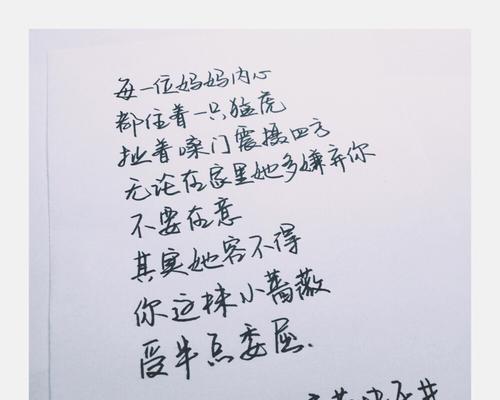 每一位妈妈内心
都住着一只猛虎
扯着嗓门震摄四方
无论在家里她多嫌弃你
不要在意
其实她容不得
你这株小蔷薇
受半点委屈.